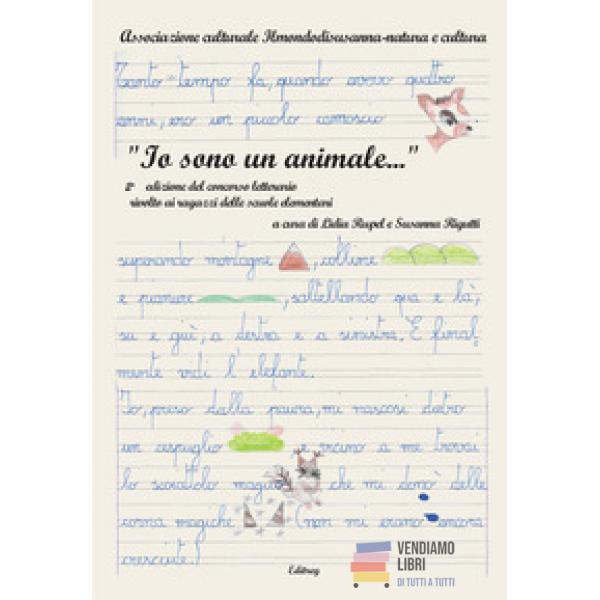 Associazione culturale Ilmondodisusanna-natura e cultura
Tanto tempo fa, quando avevo quattro
anni, ero un piccolo camoscio
"Io sono un animale..."
2ª edizione del concorso letterario
rivolto ai ragazzi delle scuole elementari
a cura di Lidia Rupel e Susanna Rigutti
superando montagne , colline
e pianure , saltellando qua e là,
su e giù, a destra e a sinistra. E final
mente vidi l'elefante.
Io, preso dalla paura, mi nascosi dietro
un cespuglio e vicino a me trovai
lo scoiattolo magico che mi donò delle
corna magiche (non mi erano ancora
cresciute!
Editreg
VENDIAMO
LIBRI
DI TUTTI A TUTTI